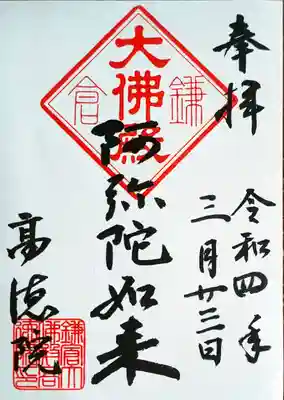 奉拝
令和四年
三月廿三日
鎌倉
大佛殿
阿弥陀如来
高徳院